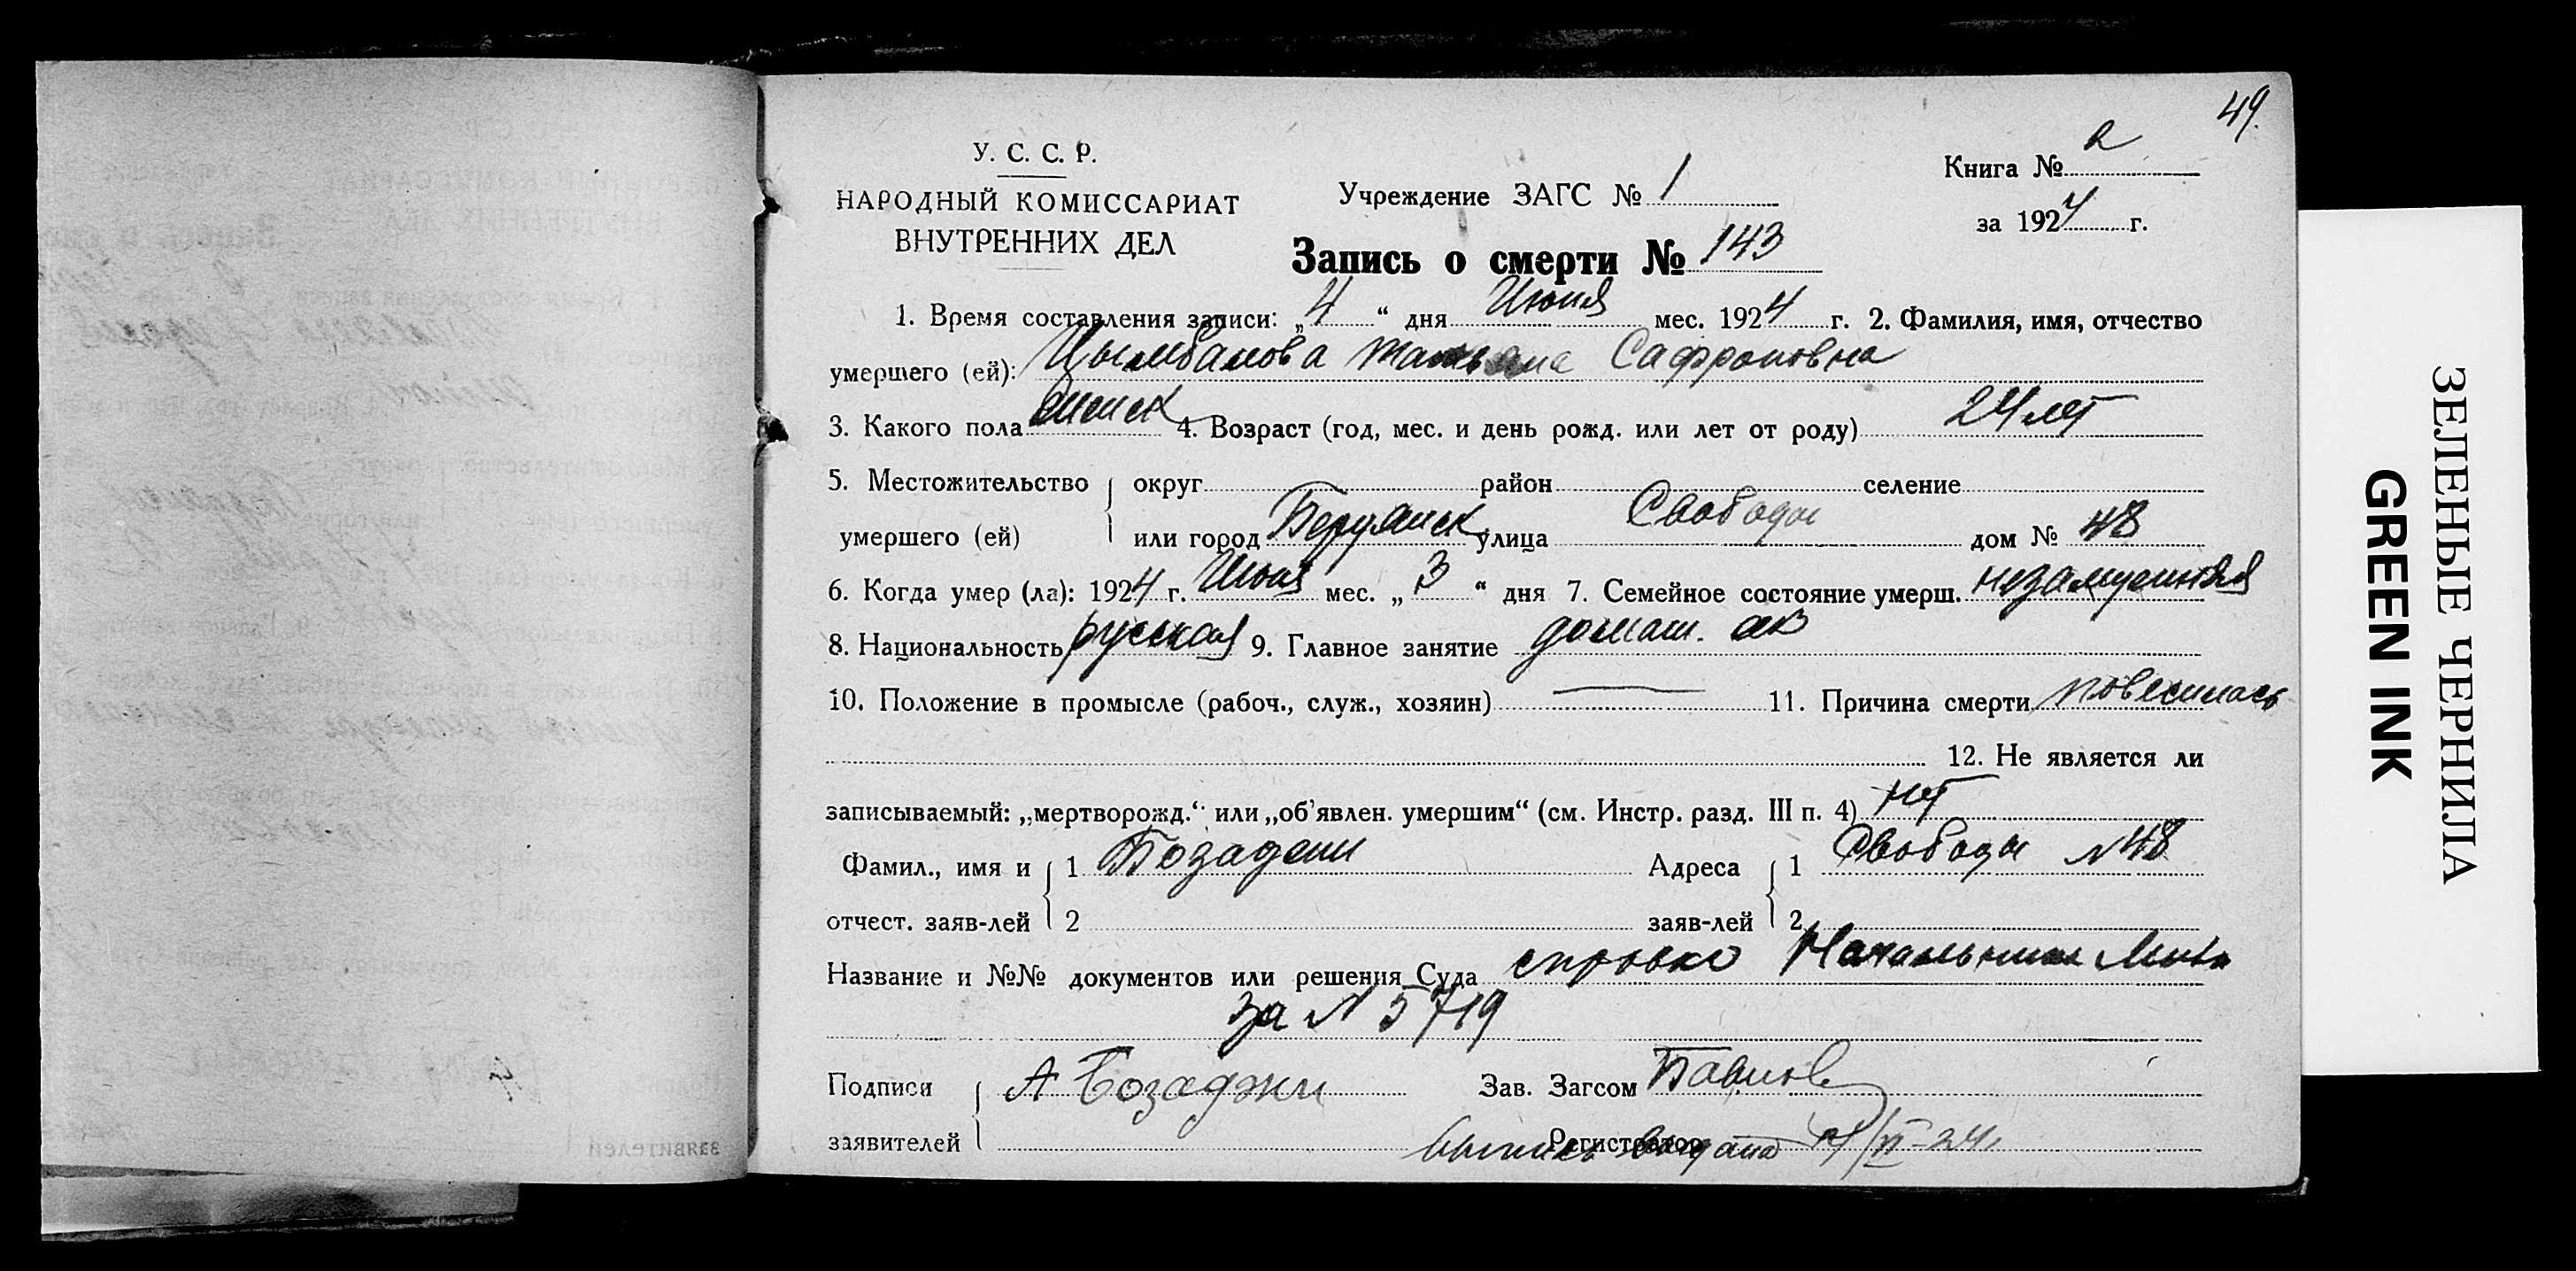 49.
У. С. С. Р.
НАРОДНЫЙ КОМИССАРИАТ
ВНУТРЕННИХ ДЕЛ
Учреждение ЗАГС № 1
Книга № 2
за 1924 г.
Запись о смерти № 143
1. Время составления записи: „4“ дня Июня мес. 1924 г. 2. Фамилия, имя, отчество
умершего (ей): Цымбалова Татьяна Сафроновна
3. Какого пола женск 4. Возраст (год, мес. и день рожд. или лет от роду) 24 лет
5. Местожительство округ район селение
умершего (ей) или город Бердянск улица Свободы дом № 48
6. Когда умер (ла): 1924 г. Июня мес. „3“ дня 7. Семейное состояние умерш. незамужняя
8. Национальность русская 9. Главное занятие домаш.
10. Положение в промысле (рабоч., служ., хозяин) — 11. Причина смерти повесилась
12. Не является ли
записываемый: „мертворожд.“ или „об’явлен. умершим“ (см. Инстр. разд. III п. 4) нет
Фамил., имя и 1 Бозаджи Адреса 1 Свободы № 48
отчест. заяв-лей 2 заяв-лей 2
Название и №№ документов или решения Суда справка Начальника
за № 5719
Подписи А Бозаджи Зав. Загсом
заявителей Регистратор выпись выдана 4/VI-24г
ЗЕЛЕНЫЕ ЧЕРНИЛА
GREEN INK